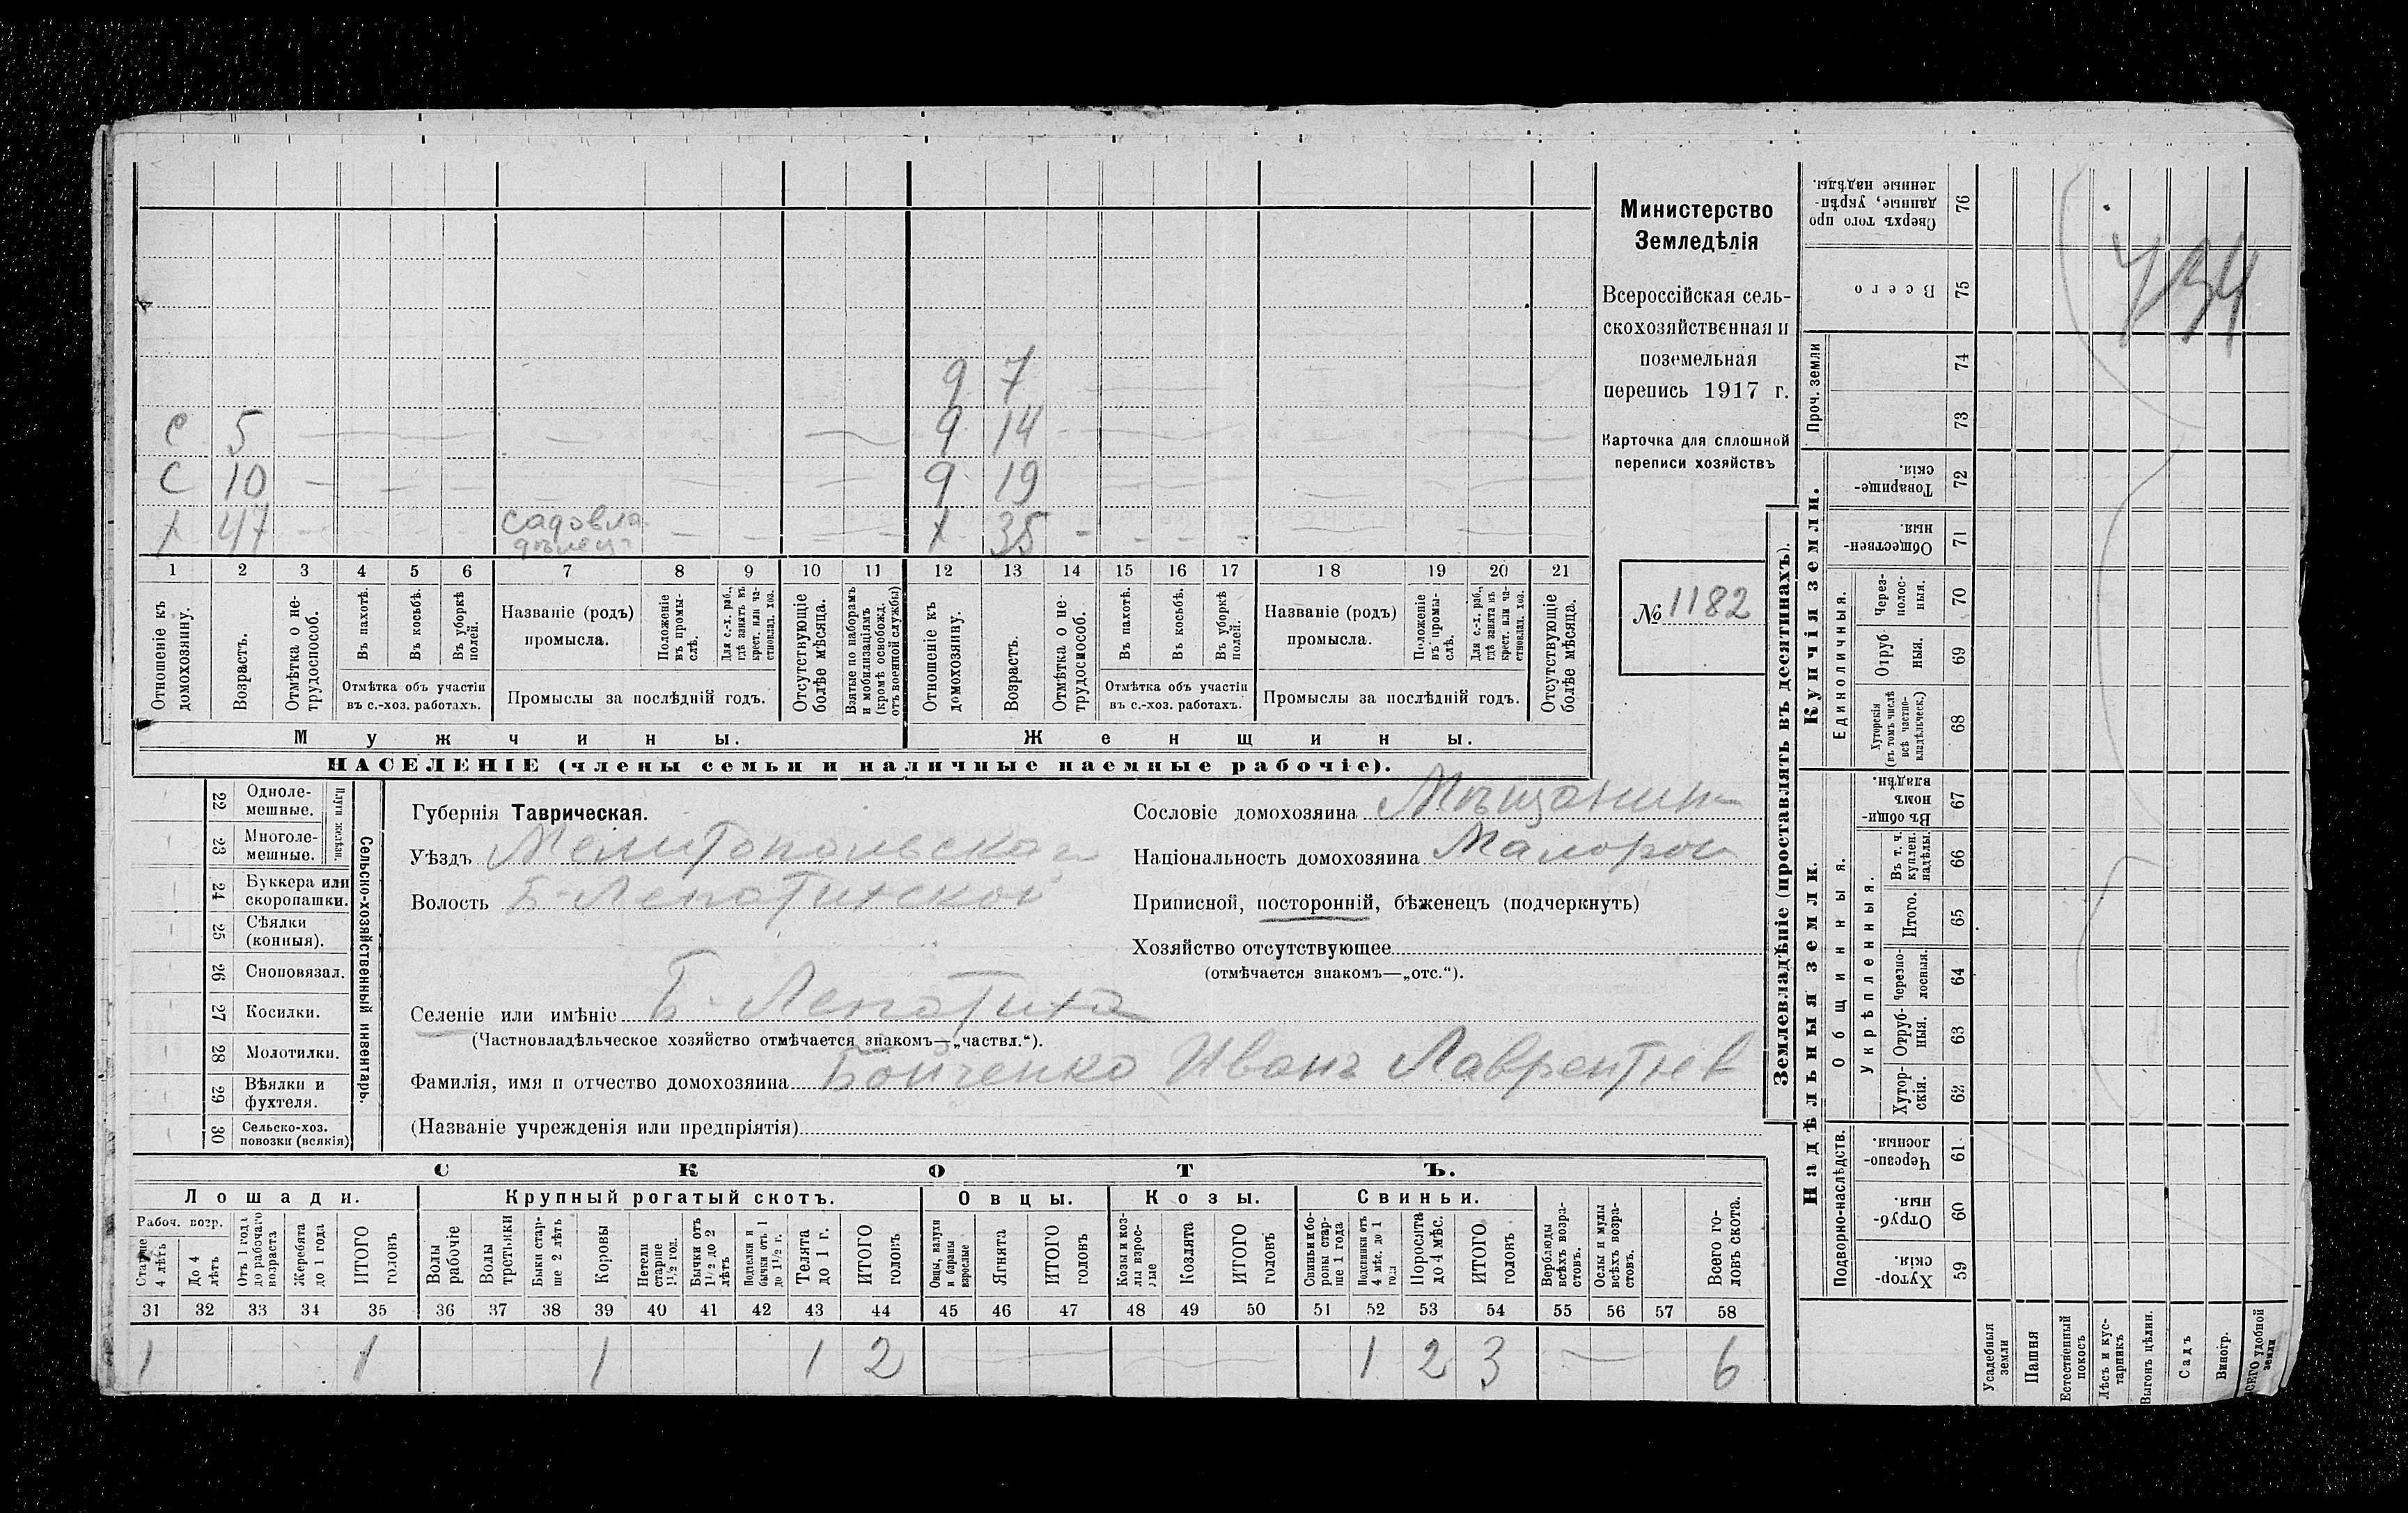 Министерство
Земледѣлія
Всероссійская сель-
скохозяйственная и
поземельная
перепись 1917 г.
Карточка для сплошной
переписи хозяйствъ
№ 1182
734
9 7
С 5 — — — 9 14
С 10 — — — 9 19
Х 47 — садовла
дѣлецъ — Х 35
1 2 3 4 5 6 7 8 9 10 11 12 13 14 15 16 17 18 19 20 21
Отношеніе къ домохозяину.
Возрастъ.
Отмѣтка о не-трудоспособ.
Въ пахотѣ.
Въ косьбѣ.
Въ уборкѣ полей.
Отмѣтка объ участіи
въ с.-хоз. работахъ.
Названіе (родъ)
промысла.
Положеніе въ промы-слѣ.
Для с.-х. раб., гдѣ занятъ въ крест. или ча-стновлад. хоз.
Промыслы за послѣдній годъ.
Отсутствующіе болѣе мѣсяца.
Взятые по наборамъ и мобилизаціямъ (кромѣ освобожд. отъ военной службы)
Отношеніе къ домохозяину.
Возрастъ.
Отмѣтка о не-трудоспособ.
Въ пахотѣ.
Въ косьбѣ.
Въ уборкѣ полей.
Отмѣтка объ участіи
въ с.-хоз. работахъ.
Названіе (родъ)
промысла.
Положеніе въ промы-слѣ.
Для с.-х. раб., гдѣ занята въ крест. или ча-стновлад. хоз.
Промыслы за послѣдній годъ.
Отсутствующіе болѣе мѣсяца.
Мужчины.
Женщины.
НАСЕЛЕНІЕ (члены семьи и наличные наемные рабочіе).
Сельско-хозяйственный инвентарь.
Плуги желѣзн.
22 Одноле-мешные.
23 Многоле-мешные.
24 Буккера или скоропашки.
25 Сѣялки (конныя).
26 Сноповязал.
27 Косилки.
28 Молотилки.
29 Вѣялки и фухтеля.
30 Сельско-хоз. повозки (всякія)
Губернія Таврическая.
Уѣздъ Мелитопольскаго
Волость Б-Лепатихской
Сословіе домохозяина Мѣщанинъ
Національность домохозяина Малорос
Приписной, посторонній, бѣженецъ (подчеркнуть)
Хозяйство отсутствующее
(отмѣчается знакомъ—„отс.“).
Селеніе или имѣніе Б. Лепатиха
(Частновладѣльческое хозяйство отмѣчается знакомъ—„частвл.“).
Фамилія, имя и отчество домохозяина Бойченко Иванъ Лаврентьев
(Названіе учрежденія или предпріятія)
СКОТЪ.
Лошади.
Крупный рогатый скотъ.
Овцы.
Козы.
Свиньи.
Рабоч. возр.
Старше 4 лѣтъ
До 4 лѣтъ
Отъ 1 года до рабочаго возраста
Жеребята до 1 года
ИТОГО головъ
Волы рабочіе
Волы третьяки
Быки стар-ше 2 лѣтъ
Коровы
Нетели старше 1½ год.
Бычки отъ 1½ до 2 лѣтъ
Подтелки и бычки отъ 1 до 1½ г.
Телята до 1 г.
ИТОГО головъ
Овцы, валухи и бараны взрослые
Ягнята
ИТОГО головъ
Козы и коз-лы взрос-лые
Козлята
ИТОГО головъ
Свиньи и бо-ровы стар-ше 1 года
Подсвинки отъ 4 мѣс. до 1 года
Поросята до 4 мѣс.
ИТОГО головъ
Верблюды всѣхъ возра-стовъ.
Ослы и мулы всѣхъ возра-стовъ.
Всего го-ловъ скота.
31 32 33 34 35 36 37 38 39 40 41 42 43 44 45 46 47 48 49 50 51 52 53 54 55 56 57 58
1 1 1 1 2 — — 1 2 3 — 6
Землевладѣніе (проставлять въ десятинахъ).
Надѣльныя земли.
Купчія земли.
Проч. земли
Подворно-наслѣдств.
Общинныя.
Укрѣпленныя.
Единоличныя.
Сверхъ того про данные, укрѣп-ленные надѣлы. 76
Всего 75
74
73
Товарище-скія. 72
Обществен-ныя. 71
Через-полос-ныя. 70
Отруб ныя. 69
Хуторскія (въ томъ числѣ всѣ частно-владѣльческ.) 68
Въ общин-номъ владѣн. 67
Въ т. ч. куплен. надѣлы. 66
Итого. 65
Черезпо-лосныя. 64
Отруб-ныя. 63
Хутор-скія. 62
Черезпо-лосныя. 61
Отруб-ныя. 60
Хутор-скія. 59
Усадебныя земли
Пашня
Естественный покосъ
Лѣсъ и кус-тарникъ
Выгонъ цѣлин.
Садъ
Виногр.
ВСЕГО удобной земли